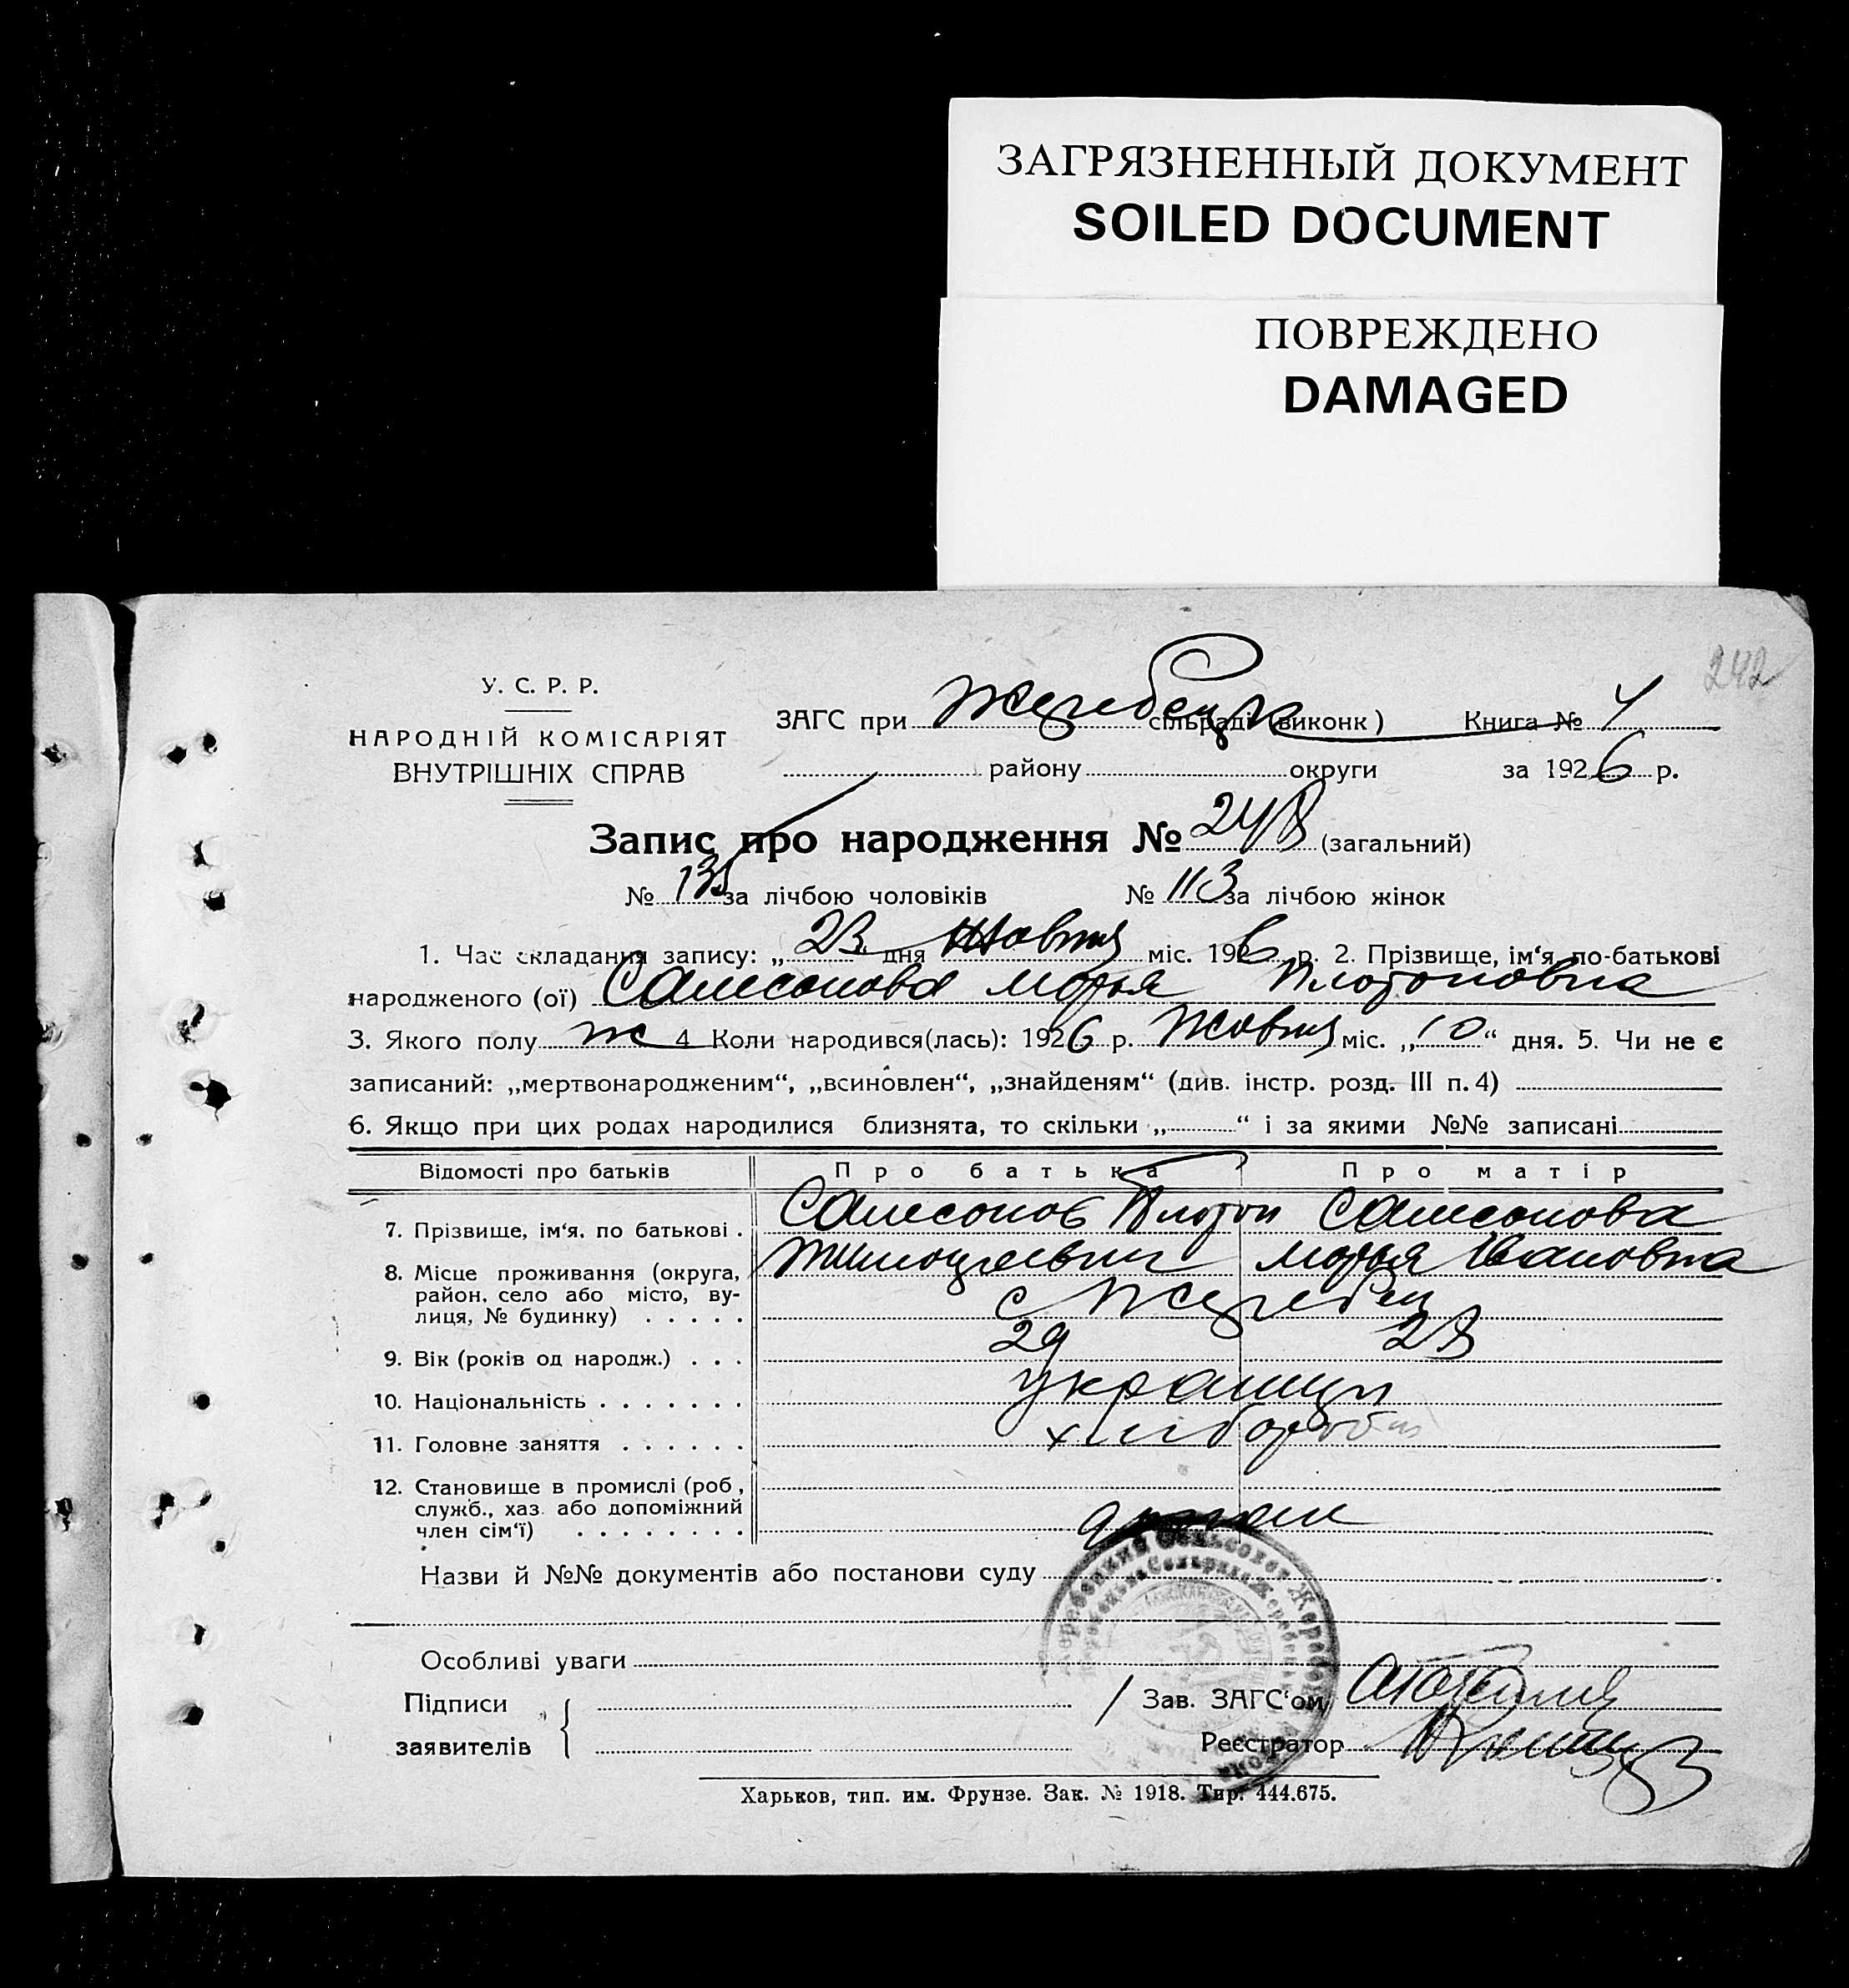 ЗАГРЯЗНЕННЫЙ ДОКУМЕНТ
SOILED DOCUMENT
ПОВРЕЖДЕНО
DAMAGED
242
У. С. Р. Р.
НАРОДНІЙ КОМІСАРІЯТ
ВНУТРІШНІХ СПРАВ
ЗАГС при сільраді (виконк) Книга №
району округи за 1926 р.
Запис про народження № 248 (загальний)
№ 135 за лічбою чоловіків № 113 за лічбою жінок
1. Час складання запису: „23“ дня Жовтня міс. 1926 р. 2. Прізвище, ім‘я, по-батькові
народженого (ої) Самсонова Марья Платоновна
3. Якого полу ж 4 Коли народився(лась): 1926 р. Жовтня міс. „10“ дня. 5. Чи не є
записаний: „мертвонародженим“, „всиновлен“, „знайденям“ (див. інстр. розд. III п. 4)
6. Якщо при цих родах народилися близнята, то скільки „ “ і за якими №№ записані
Відомості про батьків Про батька Про матір
7. Прізвище, ім‘я. по батькові . Самсонов Платон Самсонова
Марья Ивановна
8. Місце проживання (округа,
район, село або місто, ву-
лиця, № будинку) . . . . . с Жеребец
9. Вік (років од народж.) . . . 29 28
10. Національність . . . . . . . украинци
11. Головне заняття . . . . . . хлібороби
12. Становище в промислі (роб.,
служб., хаз. або допоміжний
член сім‘ї) . . . . . . . .
Назви й №№ документів або постанови суду
Особливі уваги
Підписи
заявителів
Зав. ЗАГС‘ом
Реєстратор
Харьков, тип. им. Фрунзе. Зак. № 1918. Тир. 444.675.